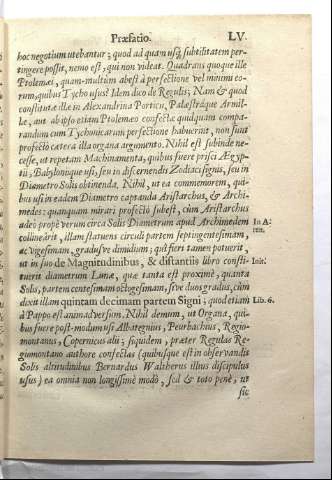 Præfatio. LV.
hoc negotium utebantur; quod ad quam usq; subtilitatem per-
tingere possit, nemo est, qui non videat. Quadrans quoque ille
Ptolemæi, quam-multùm abest à perfectione vel minimi eo-
rum, quibus Tycho usus? Idem dico de Regulis; Nam & quod
constitutæ illæ in Alexandrina Porticu, Palæstráque Armil-
læ, aut ab ipso etiam Ptolemæo confectæ quidquam compa-
randum cum Tychonicarum perfectione habuerint, non sunt
profectò cætera illa organa argumento. Nihil est subinde ne-
cesse, ut repetam Machinamenta, quibus fuere prisci Ægyp-
tii, Babylonique usi, seu in discernendis Zodiaci signis, seu in
Diametro Solis obtinenda. Nihil, ut ea commemorem, qui-
bus usi in eadem Diametro captanda Aristarchus, & Archi-
medes: quanquam mirari profectò subest, cùm Aristarchus
adeò propè verum circa Solis Diametrum apud Archimedem In A-
collineârit, illam statuens circuli partem septingentesimam, ren.
ac vigesimam, gradúsve dimidium; quî fieri tamen potuerit,
ut in suo de Magnitudinibus, & distantiis libro consti- Init.
tuerit diametrum Lunæ, quæ tanta est proximè, quanta
Solis, partem centesimam octogesimam, sive duos gradus, cùm
dixit illam quintam decimam partem Signi; quod etiam Lib. 6.
à Pappo est animadversum. Nihil demum, ut Organa, qui-
bus fuere post-modum usi Albategnius, Peurbachius, Regio-
montanus, Copernicus alii; siquidem, præter Regulas Re-
giomontano authore confectas (quibusque est in observandis
Solis altitudinibus Bernardus Waltherus illius discipulus
usus) ea omnia non longissimè modò, sed & toto penè, ut
sic